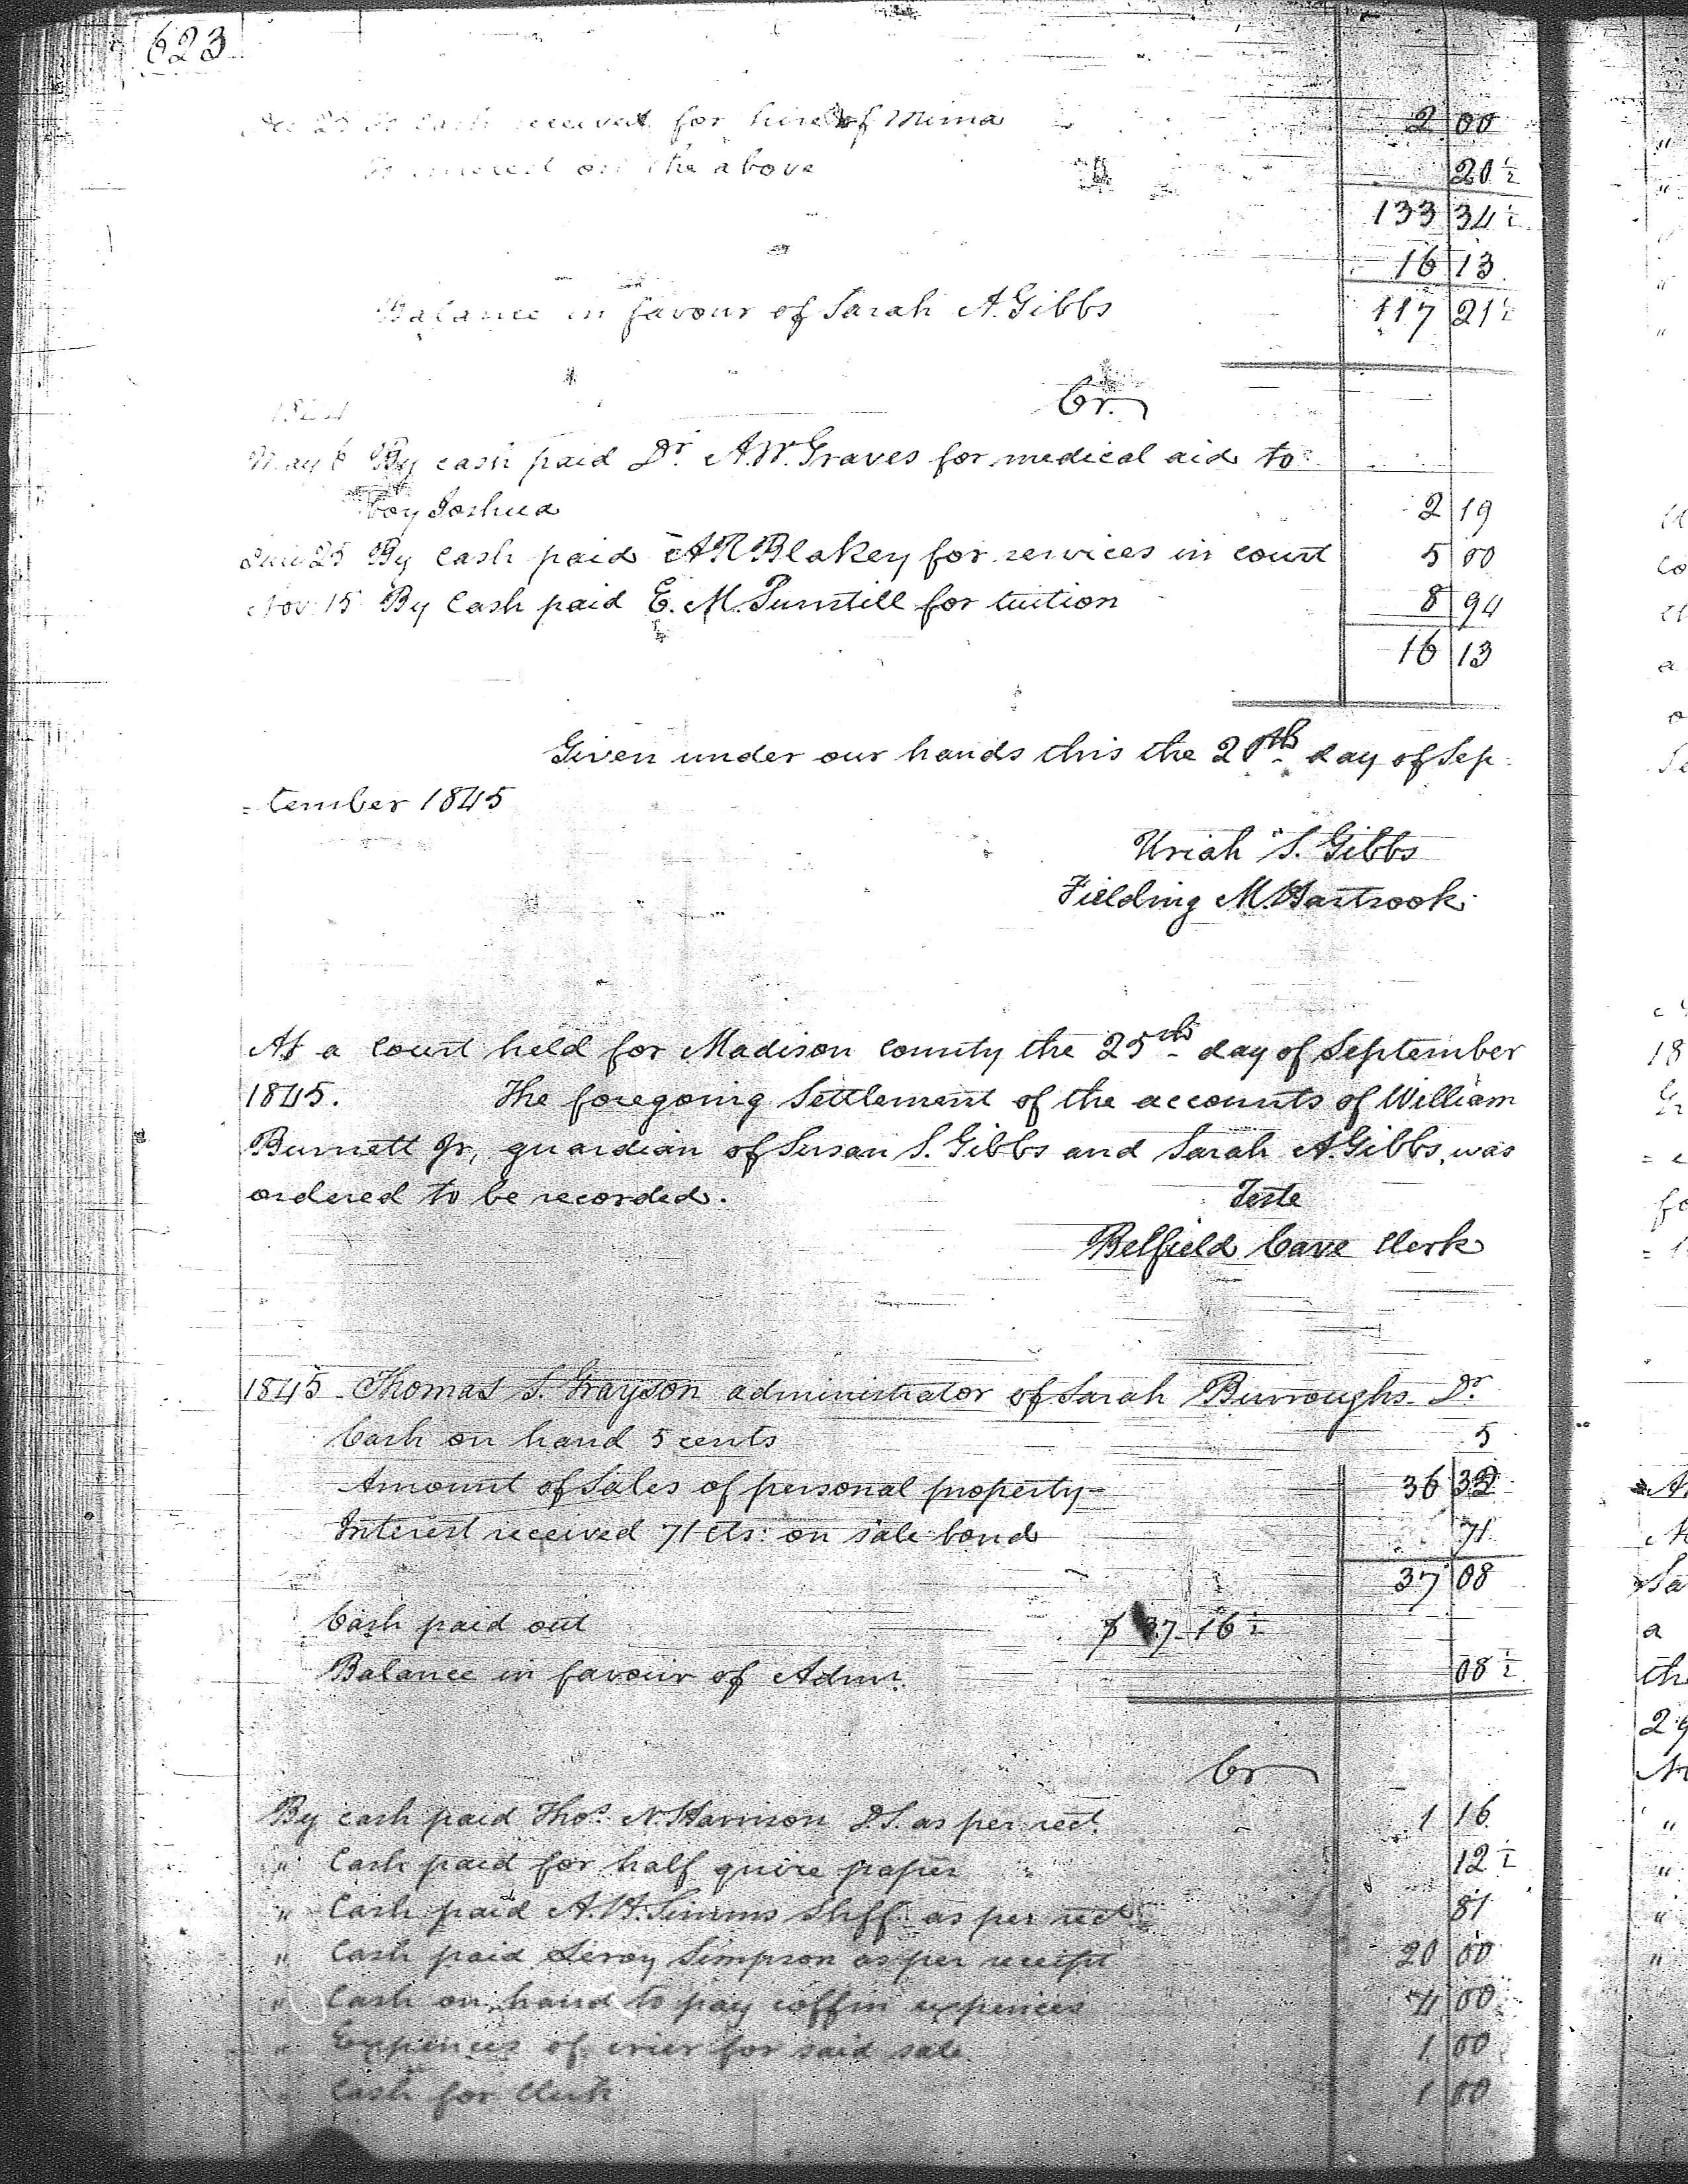 623
Dec 25 To Cash received for hire of Mima 2 00
To interest on the above 20 1/2
133 34 1/2
16 13
Balance in favour of Sarah A. Gibbs 117 21 1/2
Cr.
1844
May 6 By cash paid Dr. A.W. Graves for medical aid to
boy Joshua 2 19
25 By Cash paid A R Blakey for services in court 5 00
Nov 15 By Cash paid E. M. for tuition 8 94
16 13
Given under our hands this the 20th day of Sep-
=tember 1845
Uriah S. Gibbs
Fielding M.
At a Court held for Madison County the 25th day of September
1845. The foregoing Settlement of the accounts of William
Burnett Jr, guardian of Susan S. Gibbs and Sarah A. Gibbs, was
ordered to be recorded.
Teste
Belfield Cave Clerk
1845 - Thomas S. Grayson administrator of Sarah Burroughs - Dr.
Cash on hand 5 cents 5
Amount of Sales of personal property - 36 32
Interest received 71 cts: on sale bond 71
37 08
Cash paid out $ 37.16 1/2
Balance in favour of Admr. 08 1/2
Cr
By cash paid Thos. N. Harrison D.S. as per rect. 1 16
" Cash paid for half quire paper 12 1/2
" Cash paid A.H. Simms Shff. as per rect. 81
" Cash paid Leroy Simpson as per receipt 20 00
" Cash on hand to pay coffin expences 4 00
" Expences of crier for said sale 1 00
" Cash for Clerk 1 00